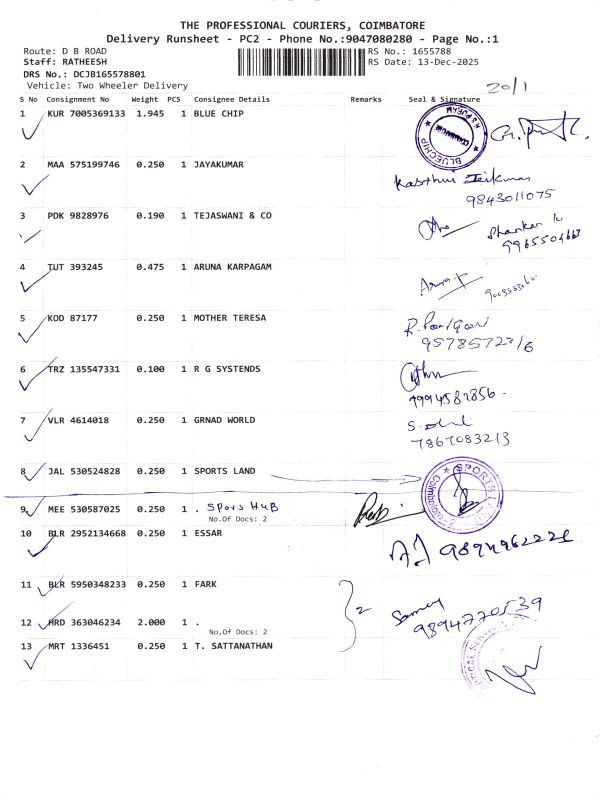 THE PROFESSIONAL COURIERS, COIMBATORE
Delivery Runsheet - PC2 - Phone No.:9047080280 - Page No.:1
Route: D B ROAD RS No.: 1655788
Staff: RATHEESH RS Date: 13-Dec-2025
DRS No.: DCJB165578801
Vehicle: Two Wheeler Delivery
20/1
S No Consignment No Weight PCS Consignee Details Remarks Seal & Signature
1 KUR 7005369133 1.945 1 BLUE CHIP
BLUECHIP
COIMBATORE
2 MAA 575199746 0.250 1 JAYAKUMAR
9843011075
3 PDK 9828976 0.190 1 TEJASWANI & CO
Shankar
4 TUT 393245 0.475 1 ARUNA KARPAGAM
5 KOD 87177 0.250 1 MOTHER TERESA
6 TRZ 135547331 0.100 1 R G SYSTENDS
7 VLR 4614018 0.250 1 GRNAD WORLD
7867083213
8 JAL 530524828 0.250 1 SPORTS LAND
SPORTS
Coimbatore
9 MEE 530587025 0.250 1 . Spors HUB
No.Of Docs: 2
10 BLR 2952134668 0.250 1 ESSAR
11 BLR 5950348233 0.250 1 FARK
2
9894770539
12 HRD 363046234 2.000 1 .
No.Of Docs: 2
13 MRT 1336451 0.250 1 T. SATTANATHAN